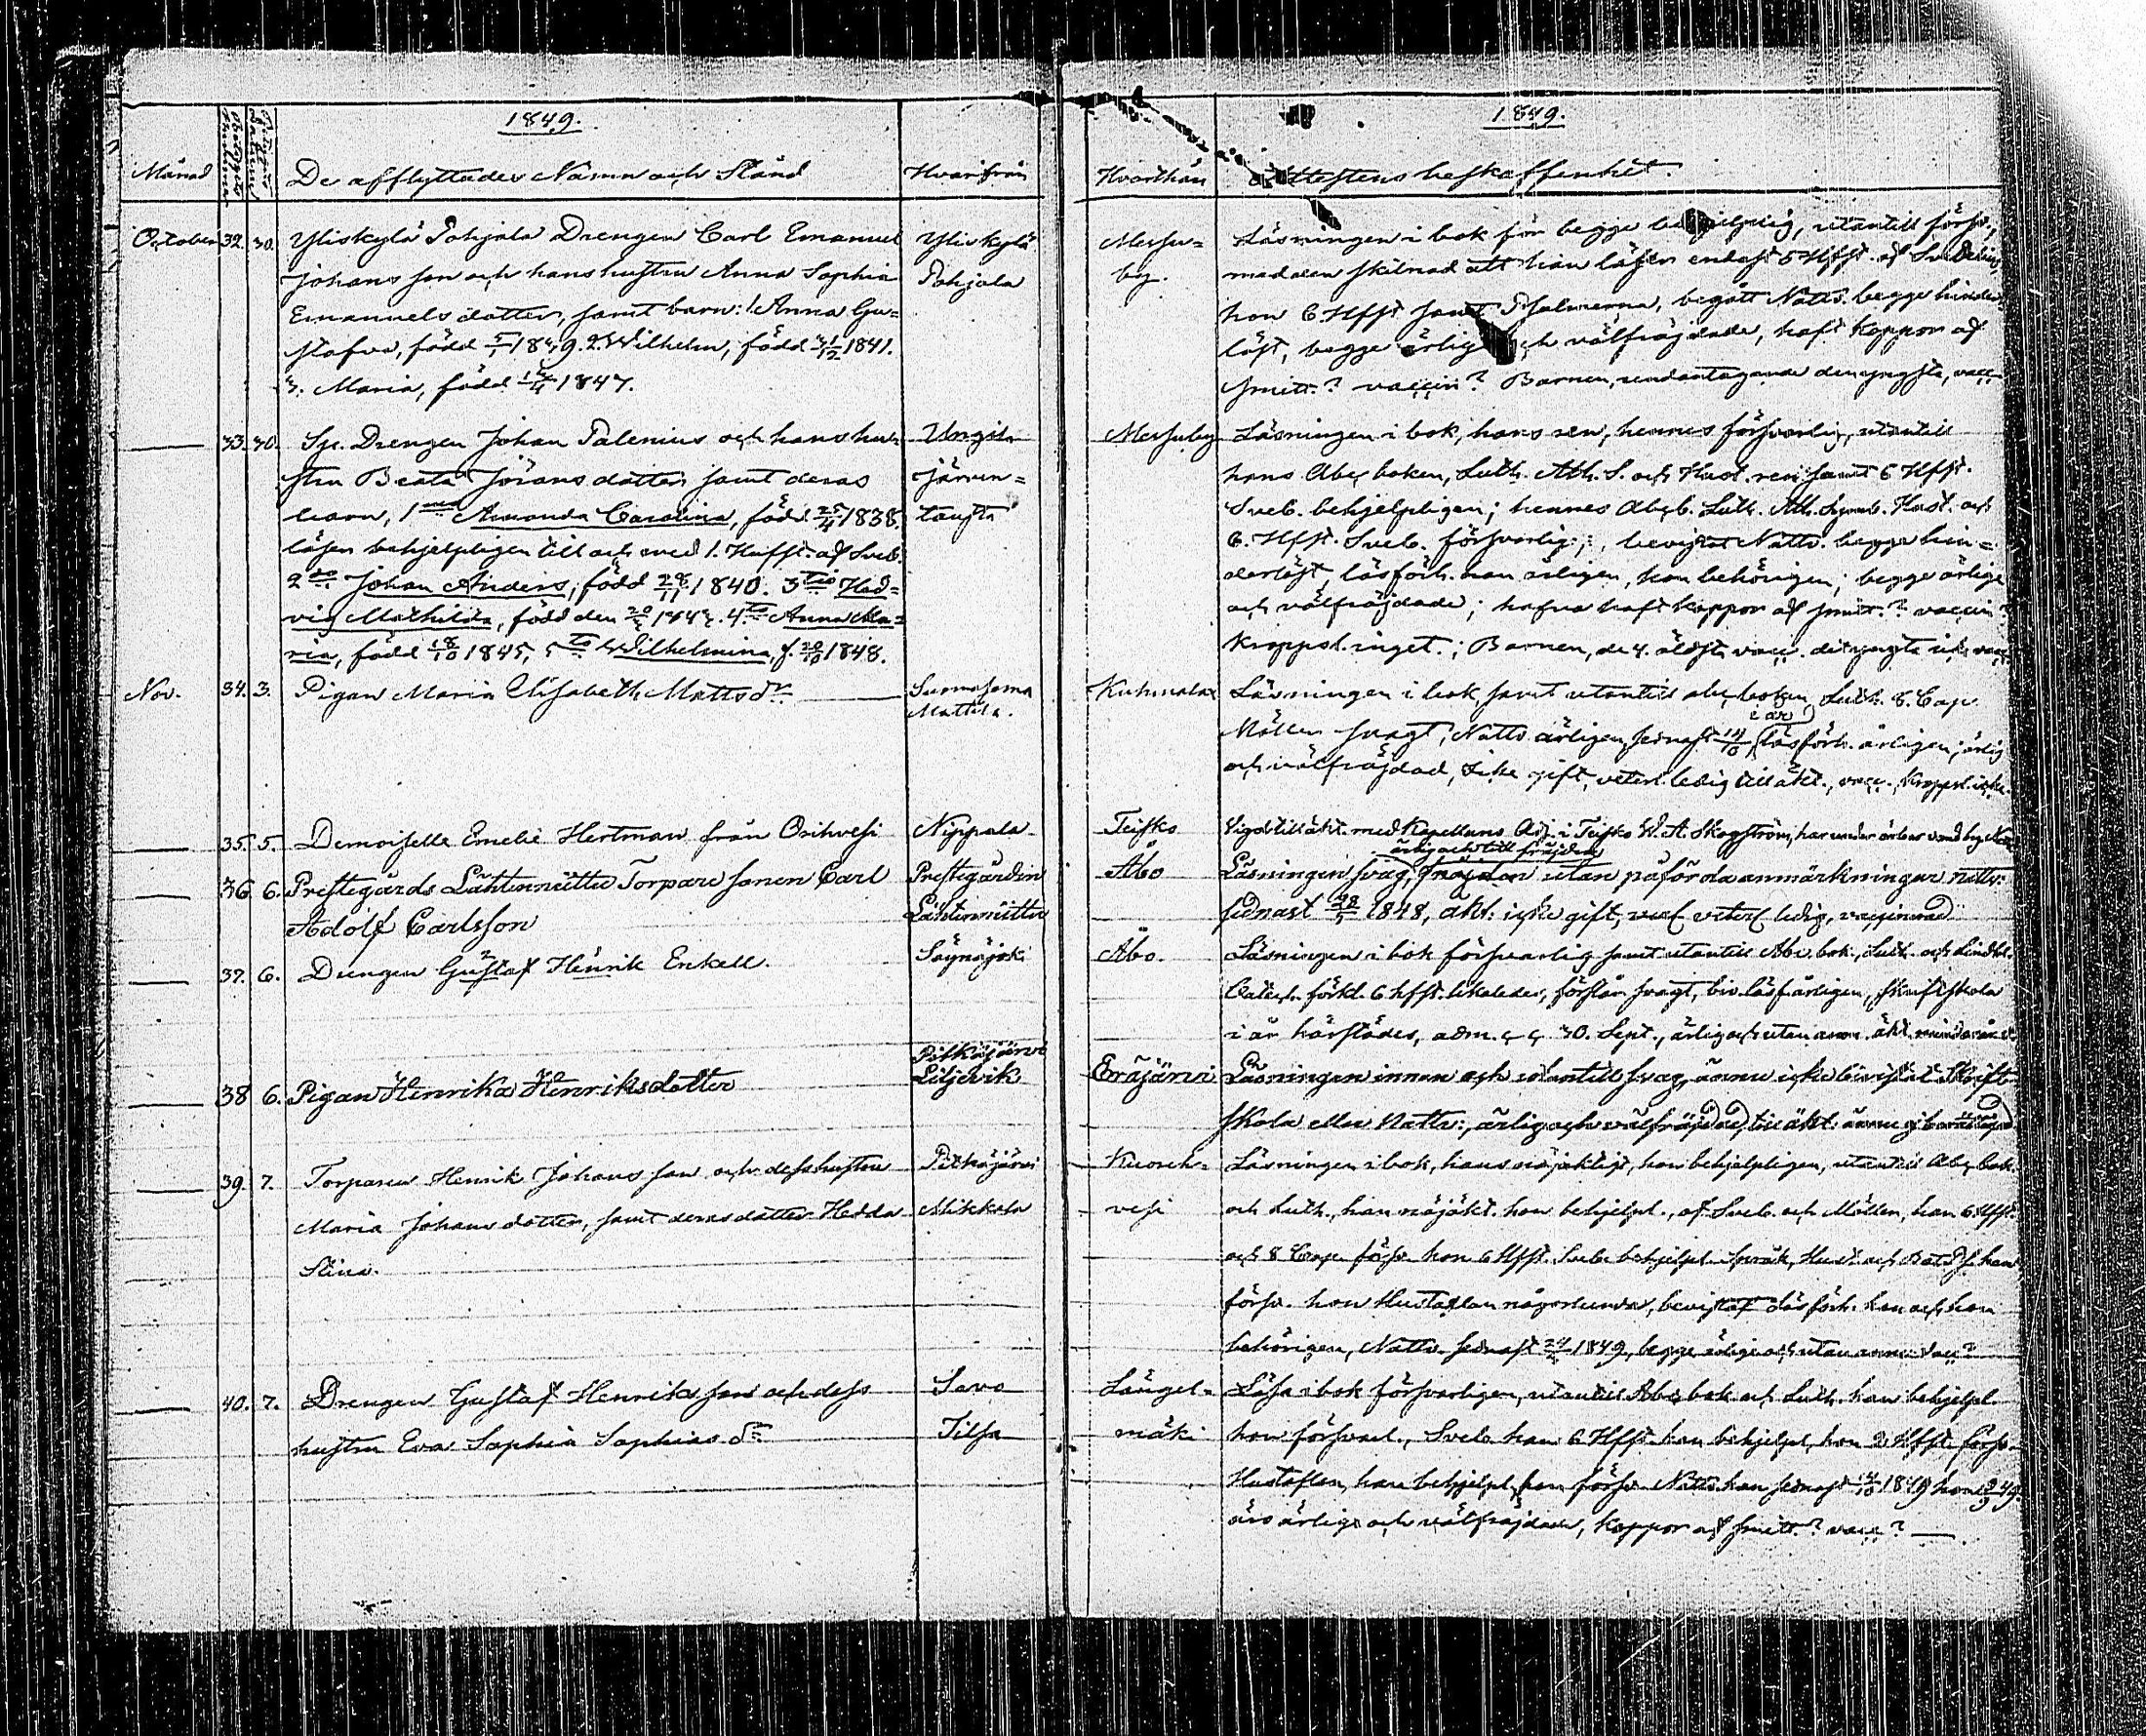 1849.
Månad
De afflyttades Namn och Stånd
Hvarifrån
October 32. 30. Yliskylä Pohjola Drengen Carl Emanuel Yliskylä
Johansson och hans hustru Anna Sophia Pohjola
Emanuels dotter, samt barn: 1. Anna Gu=
stafva, född 2. Wilhelm, född 1841.
3. Maria, född 1847.
33. 30. Sn. Drengen Johan Palenius och hans hu=
stru Beata Jörans dotter samt deras
barn, 1 Amanda Carolina, född 1838,
läser behjelpligen till och med 1. Huffst. af Sveb.
2do Johan Anders, född 28/11 1840. 3tio Hed=
vig Mathilda, född den 4to Anna Ma=
ria, född 18/10 1845, 5to Wilhelmina, f. 20/10 1848.
Nov. 34. 3. Pigan Maria Elisabeth Mattsdr.
Mattila.
35. 5. Demoiselle Emelie Hertman från Orihvesi Nippala
36 6. Prestegårds Lähtenniitty Torpare sonen Carl Prestegården
Adolf Carlsson Lähtenniitty
37. 6. Drengen Gustaf Henrik Enkell. Säynäjoki
Pitkäjärvi
38 6. Pigan Henrika Henriksdotter Liljevik
39. 7. Torparen Henrik Johansson och dess hustru Pitkäjärvi
Maria Johans dotter, samt deras dotter Hedda Mikkola
Stina.
40. 7. Drengen Gustaf Henriksson och dess Savo
hustru Eva Sophia Sophias dr Tilsa
1849.
Hvarthän
Attestens beskaffenhet.
Messu= Läsningen i bok för begge behjelplig, utantill försv.,
by. med den skilnad att han läser endast 5 Hfst. af Svebelius
hon 6 Hfst samt Psalmerna, begått Nattv. begge hinder=
löst, begge ärlige och välfräjdade, haft koppor af
smitt.? vaccin? Barnen, undantagande den yngsta, vacc.
Messuby Läsningen i bok, hans ren, hennes försvarlig, utantill
hans Abc boken, Luth. Ath. S. och Hust. ren samt 6 Hfst.
Sveb. behjelpligen; hennes Abcb. Luth. Ath. Symb. Hust. och
6. Hfst. Sveb. försvarlig; bevistat Nattv. begge hin=
derlöst, läsförh. han årligen, hon behörigen; begge ärlige
och välfräjdade; hafva haft koppor af smitt? vaccin?
Kroppsl. inget.; Barnen, de 4. äldst. vacc. det yngsta ick vacc.
Kuhmalax Läsningen i bok, samt utantill abc boken Luth. 8. Cap.
i år
Möllers svagt, Nattv. årligen, senast läsförh. årligen; ärlig
och välfräjdad, icke gift, veterl. ledig till äkt., vacc., Kroppsl. icke.
Teisko Vigd till äkt. med Kapellans Adj. i Teisko W. A. Skogström, har under
ärlig och till fräjden
Åbo Läsningen svag, fräjdar utan påförda anmärkningar nattv:
sednast 1848, äkt: icke gift, veterl ledig, vaccinerad
Åbo. Läsningen i bok försvarlig samt utantill Abc. bok., Luth. och Lindbl.
Catech. förkl. 6 hfst. likaledes, förstår svagt, biv. läsf. årligen, skriftskola
i år härstädes, adm. 30. Sept., ärlig och utan anm.
Eräjärvi Läsningen innan och utantill svag, ännu icke bivistat Skrift=
skola eller Nattv:, ärlig och välfräjdad, till äkt: ännu ej
Kuoreh= Läsningen i bok, hans nöjaktigt, hon behjelpligen, utantill Abc bok
vesi och Luth., han nöjakt. hon behjelpl., af Sveb. och Möllers, han 6 Hfst.
och 8 Cap. försv. hon 6 Hfst. Sveb. behjelpl.
försv. hon Hustaflan någorlunda, bevistat Läsförh. han och hon
behörigen, Nattv. senast 1849, begge ärlige och utan anm. vacc?
Längel= Läsa i bok försvarligen, utantill Abc bok och Luth. han behjelpl.
mäki hon försvarl., Sveb. han 6 Hfst. han behjelpl, hon 2 Hfst. försv.
Hustaflan, han behjelpl. hon försv. Nattv. han senast 1849 hon
äro ärlige och välfräjdade, koppor af smitt? vacc?